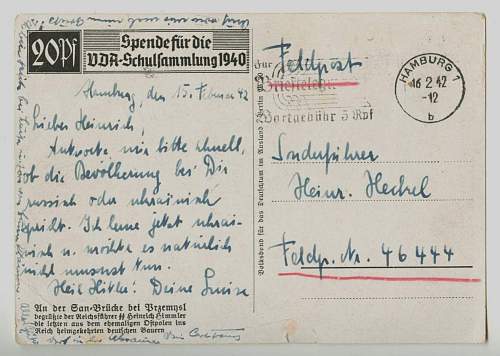 20 Pf
Spende für die
VDA-Schulsammlung 1940
Hamburg, den 15. Februar 42
Lieber Heinrich,
Antworte mir bitte schnell,
ob die Bevölkerung bei Dir
russisch oder ukrainisch
spricht. Ich lerne jetzt ukrai-
nisch u. möchte es natürlich
nicht umsonst tun.
Heil Hitler! Deine Luise
An der San-Brücke bei Przemysl
begrüßte der Reichsführer SS Heinrich Himmler
die letzten aus dem ehemaligen Ostpolen ins
Reich heimgekehrten deutschen Bauern
Volksbund für das Deutschtum im Ausland
Feldpost
Wartgebühr 3 Rpf
HAMBURG 1
16.2.42
-12
b
Sonderführer
Heinr. Heckel
Feldp. Nr. 46444